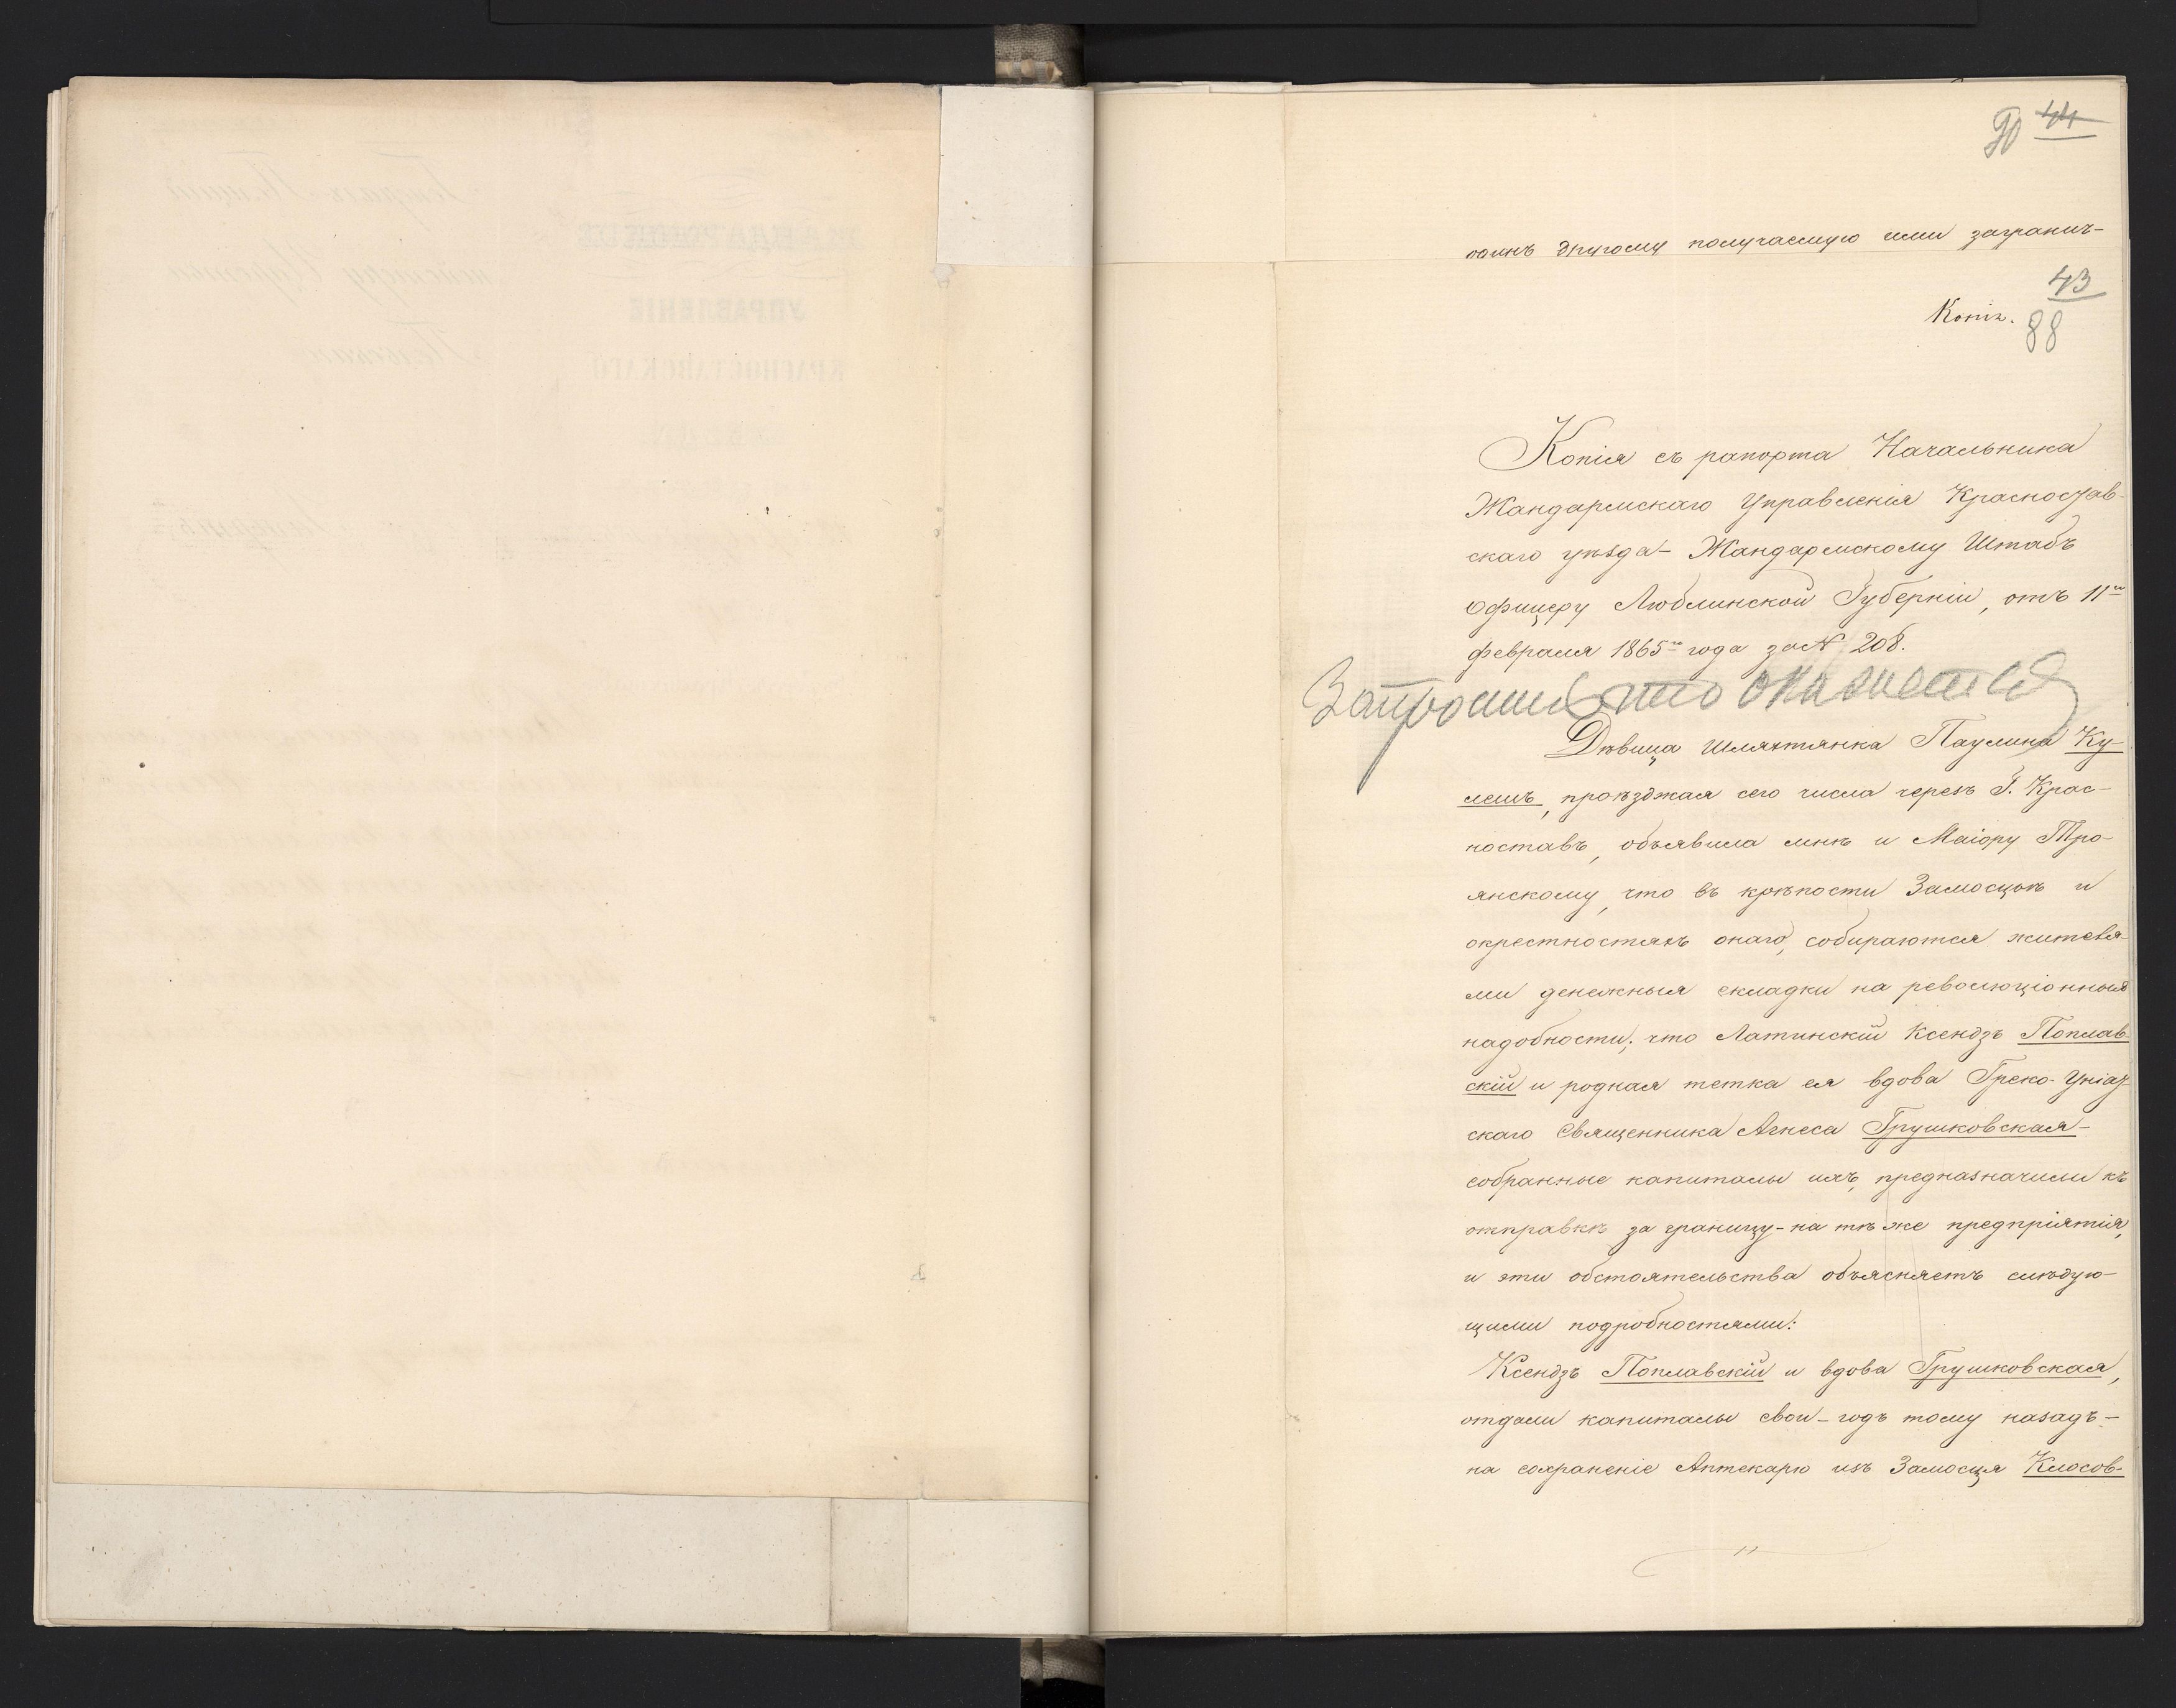 90 44
одинъ другому получаемую ими загранич-
43
Копія. 88
Копія съ рапорта Начальника
Жандармскаго Управленія Красностав-
скаго уѣзда - Жандармскому Штабъ
Офицеру Люблинской Губерніи, отъ 11го
февраля 1865го года за № 208.
Запросить что окажется
Дѣвица Шляхтянка Паулина Ку-
лешъ, проѣзжая сего числа черезъ Г. Крас-
ноставъ, объявила мнѣ и Маіору Тро-
янскому, что въ крѣпости Замосцѣ и
окрестностяхъ онаго, собираются жителя-
ми денежныя складки на революціонныя
надобности; что Латинскій Ксендзъ Поплав-
скій и родная тетка ея вдова Греко-Уніат-
скаго Священника Агнеса Грушковская -
собранные капиталы ихъ, предназначили къ
отправкѣ за границу - на тѣ же предпріятія,
и эти обстоятельства объясняетъ слѣдую-
щими подробностями:
Ксендзъ Поплавскій и вдова Грушковская,
отдали капиталы свои - годъ тому назадъ -
на сохраненіе Аптекарю изъ Замосця Клосов-
УПРАВЛЕНІЕ
КРАСНОСТАВСКАГО